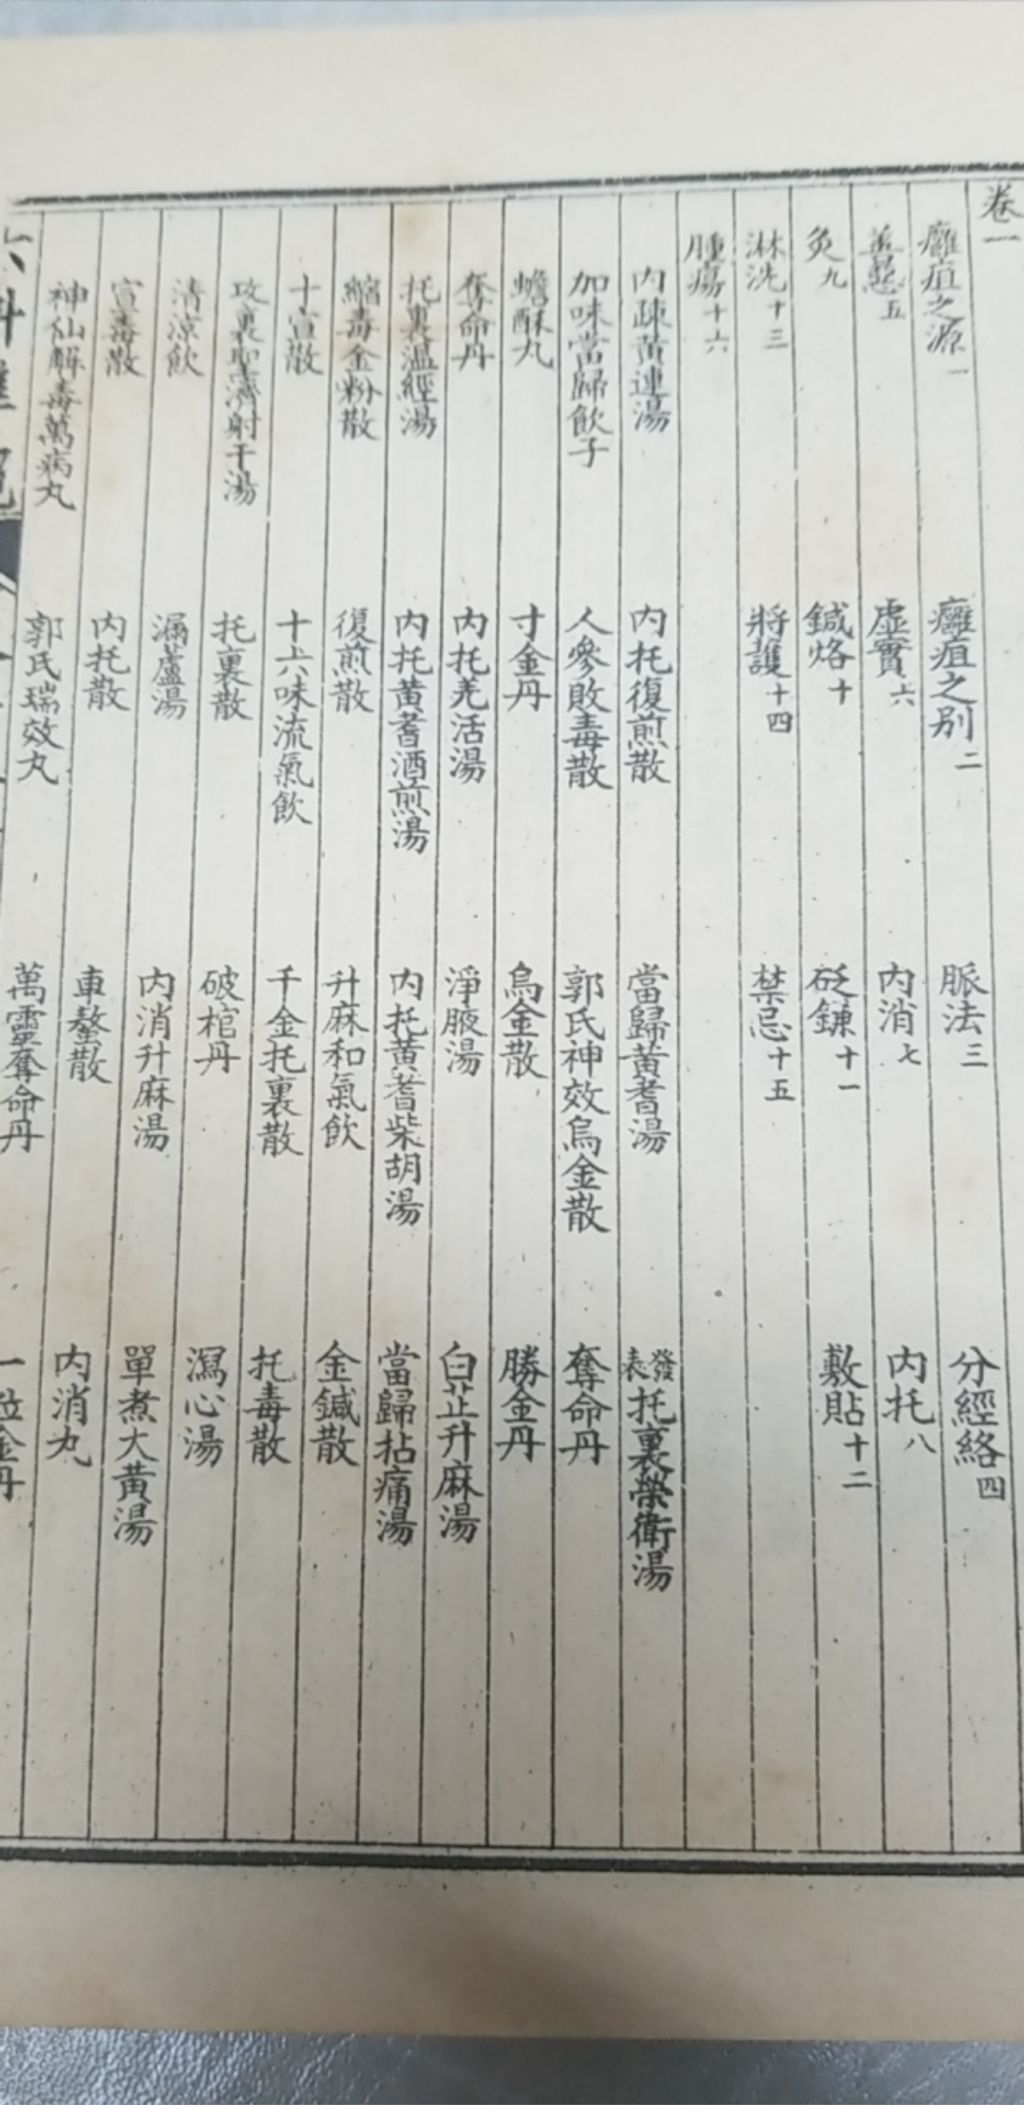 卷一
癰疽之源一 癰疽之别二 脈法三 分經絡四
善惡五 虛實六 内消七 内托八
灸九 鍼烙十 砭鐮十一 敷貼十二
淋洗十三 將護十四 禁忌十五
腫瘍十六
内疎黄連湯 内托復煎散 當歸黄耆湯 發表托裏榮衛湯
加味當歸飲子 人參敗毒散 郭氏神效烏金散 奪命丹
蟾酥丸 寸金丹 烏金散 勝金丹
奪命丹 内托羌活湯 淨腋湯 白芷升麻湯
托裏溫經湯 内托黄耆酒煎湯 内托黄耆柴胡湯 當歸拈痛湯
縮毒金粉散 復煎散 升麻和氣飲 金鍼散
十宣散 十六味流氣飲 千金托裏散 托毒散
攻裏聖濟射干湯 托裏散 破棺丹 瀉心湯
清涼飲 漏蘆湯 内消升麻湯 單煮大黄湯
宣毒散 内托散 車螯散 内消丸
神仙解毒萬病丸 郭氏瑞效丸 萬靈奪命丹 一粒金丹
六科準繩